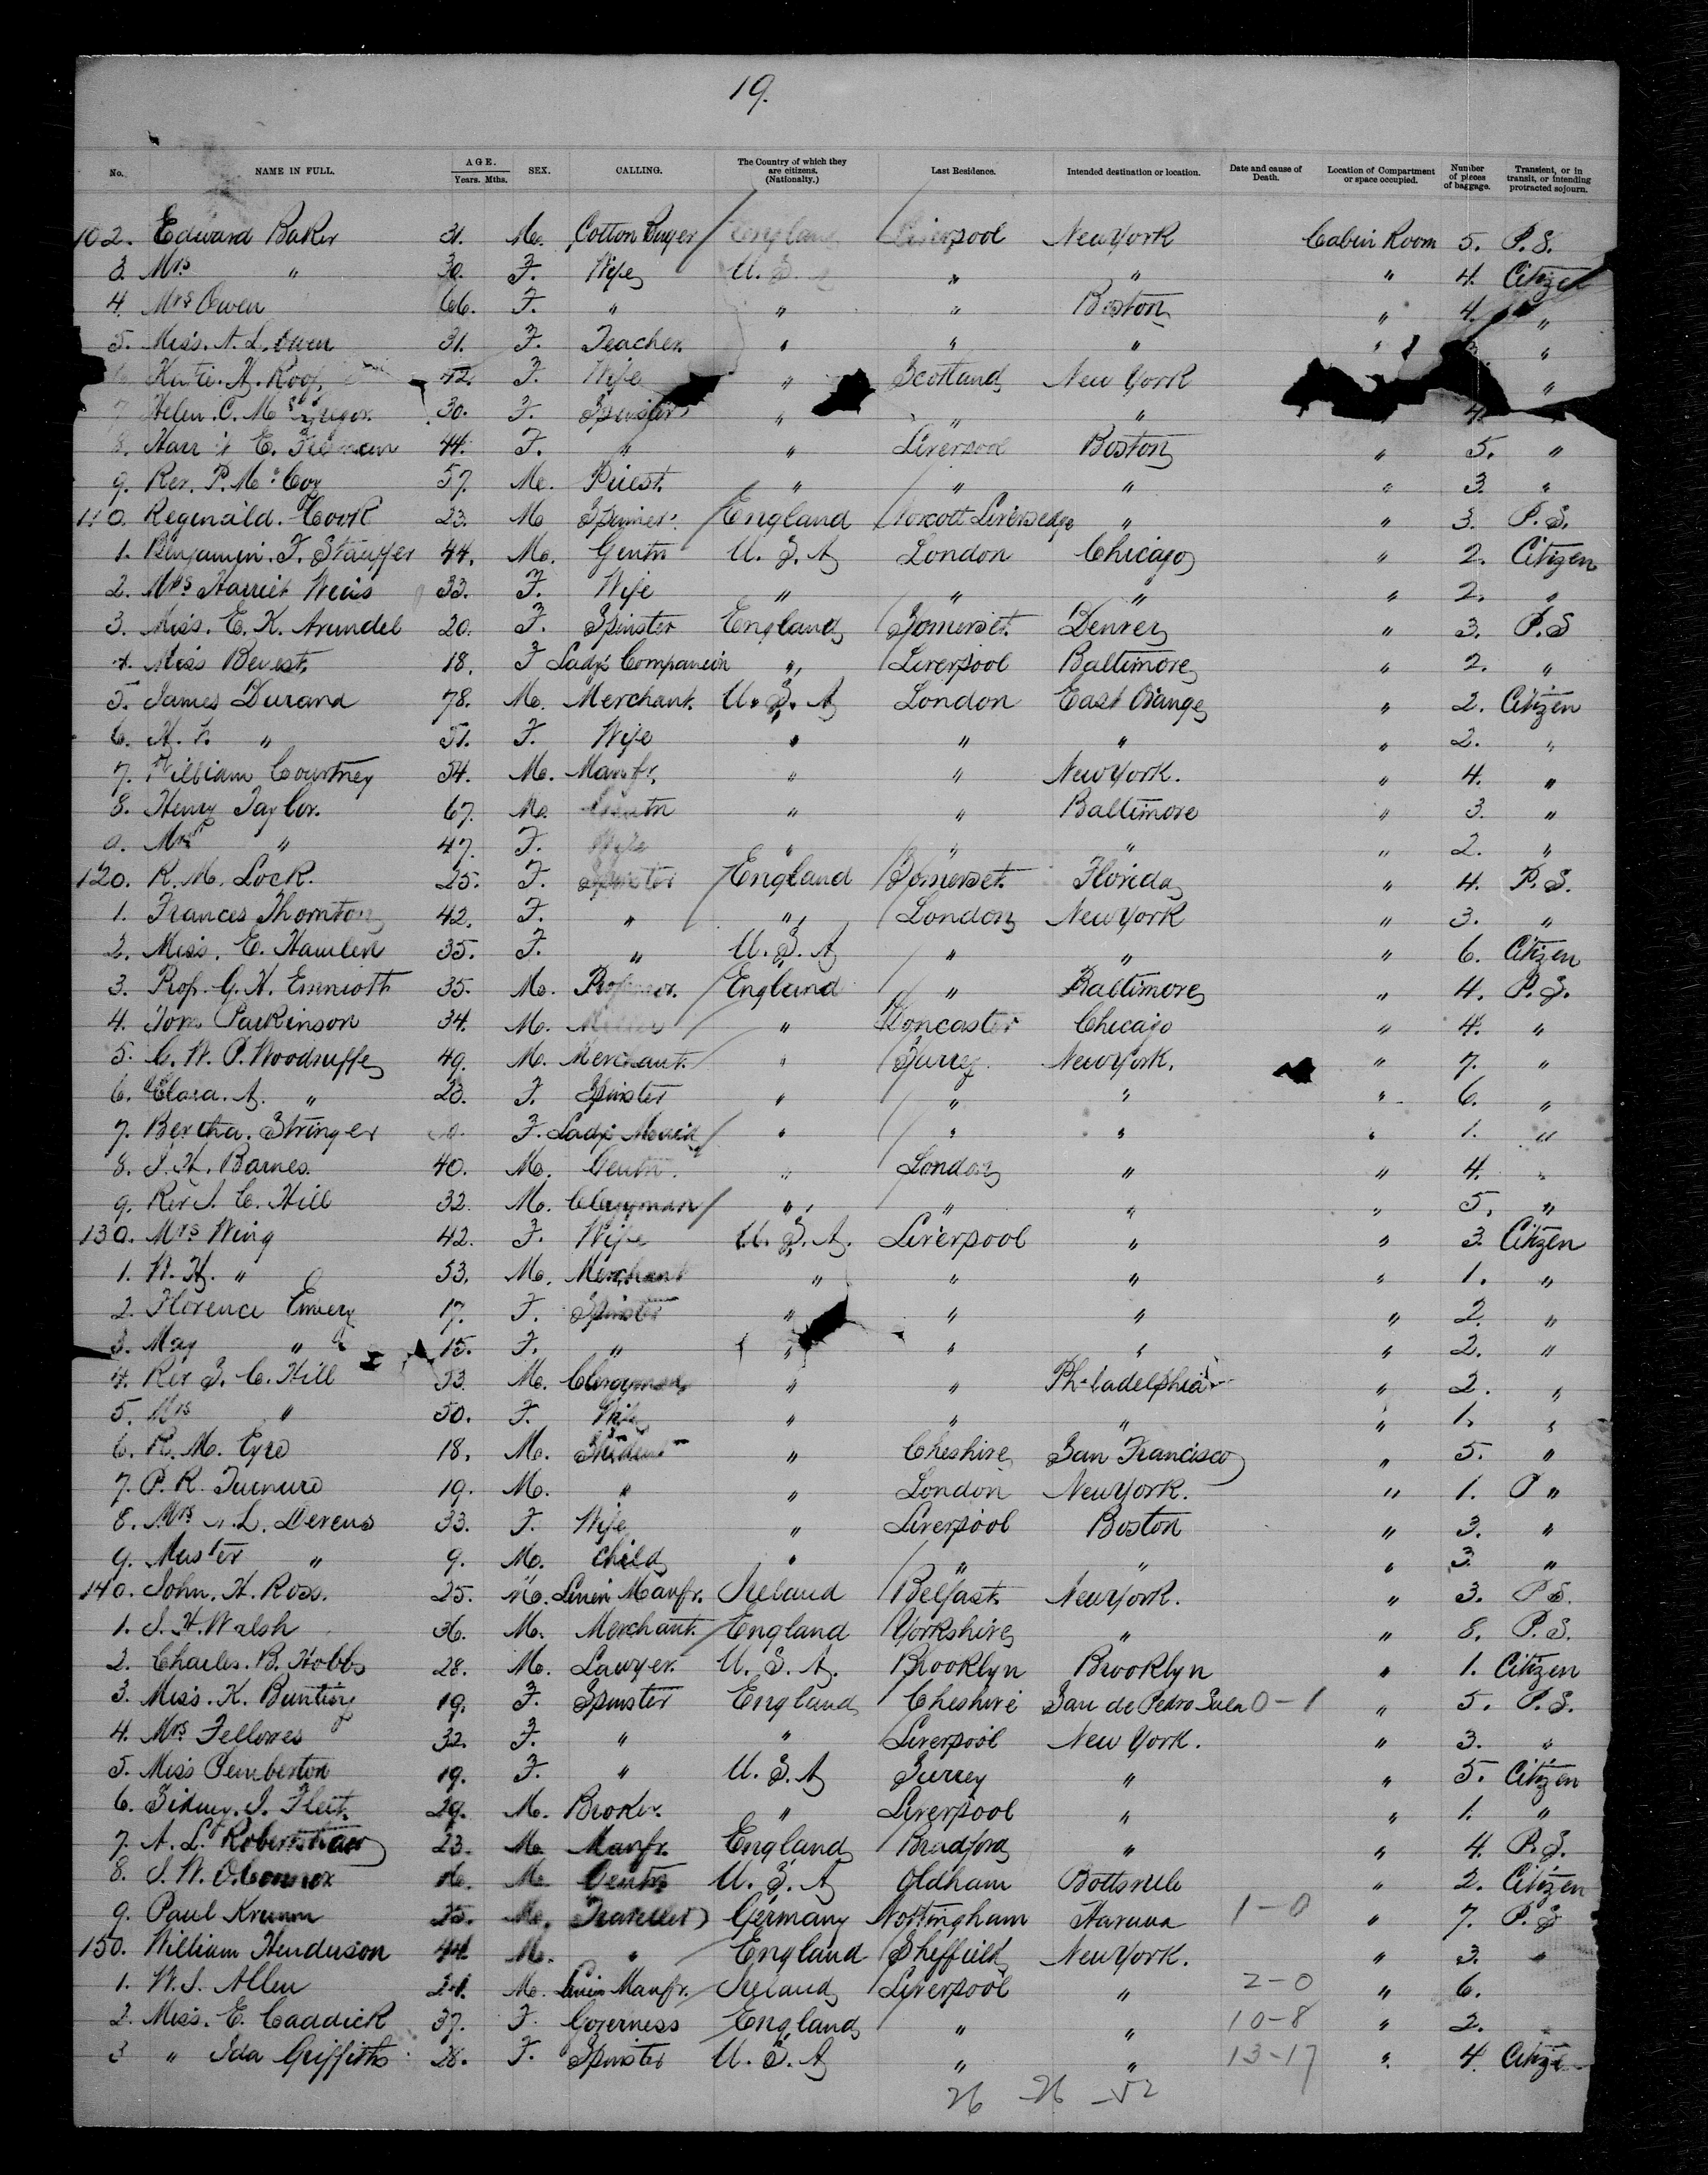 19.
No. NAME IN FULL. AGE. Years. Mths. SEX. CALLING. The Country of which they are citizens. (Nationalty.) Last Residence. Intended destination or location. Date and cause of Death. Location of Compartment or space occupied. Number of pieces of baggage. Transient, or in transit, or intending protracted sojourn.
102. Edward Baker 31. M. Cotton Buyer England Liverpool New York Cabin Room 5. P.S.
3. Mrs " 30. F. Wife U.S.A " " " 4. Citizen
4. Mrs Owen 66. F. " " " Boston " 4. "
5. Miss. A. L. Owen 31. F. Teacher " " " " "
Katie. A. Roof 42. F. Wife " Scotland New York "
7. Helen. C. McGregor 30. F. Spinster " " " 4.
8. E. Freeman 44. F. " " Liverpool Boston " 5. "
9. Rev. P. McCoy 57. M. Priest. " " " " 3. "
110. Reginald. Cook 23. M Spinner. England Liversedge " " 3. P.S.
1. Benjamin. F. Stauffer 44. M. Gentn U.S.A London Chicago " 2. Citizen
2. Mrs Harriet Weiss 33. F. Wife " " " " 2. "
3. Miss. E. K. Arundel 20. F. Spinster England Somerset. Denver " 3. P.S
4. Miss Bevest. 18. F Lady's Companion " Liverpool Baltimore " 2. "
5. James Durand 78. M. Merchant. U.S.A London East Orange " 2. Citizen
6. A. h. " 51. F. Wife " " " " 2. "
7. William Courtney 54. M. Manfr. " " New York. " 4. "
8. Henry Taylor. 67. M. Gentn " " Baltimore " 3. "
9. Mrs " 47. F. Wife " " " " 2. "
120. R. M. Lock. 25. F. Spinster England Somerset. Florida " 4. P.S.
1. Frances Thornton 42. F. " " London New York " 3. "
2. Miss. E. Hamlen 35. F. " U.S.A " " " 6. Citizen
3. Prof. G. H. Emmott 35. M. Professor. England " Baltimore " 4. P.S.
4. Tom Parkinson 34. M. Miller " Doncaster Chicago " 4. "
5. C. W. P. Woodruffe 49. M. Merchant. " Surrey New York. " 7. "
6. Clara. A. " 23. F. Spinster " " " " 6. "
7. Bertha. Stringer F. Lady's Maid " " " " 1. "
8. J. H. Barnes. 40. M. Gentn. " London " " 4. "
9. Rev J. C. Hill 32. M. Clergyman " " " " 5. "
130. Mrs Wing 42. F. Wife U.S.A. Liverpool " " 3. Citizen
1. W. H. " 53. M. Merchant " " " " 1. "
2. Florence Emery 17. F. Spinster " " " " 2. "
3. May " 15. F. " " " " " 2. "
4. Rev S. C. Hill 53. M. Clergyman " " Philadelphia " 2. "
5. Mrs " 50. F. Wife " " " " 1. "
6. R. M. Eyre 18. M. Student " Cheshire San Francisco " 5. "
7. P. R. Turnure 19. M. " " London New York. " 1. P "
8. Mrs L. Devens 33. F. Wife " Liverpool Boston " 3. "
9. Master " 9. M. Child " " " " 3. "
140. John. H. Ross. 25. M. Linen Manfr. Ireland Belfast. New York. " 3. P.S.
1. J. H. Walsh 36. M. Merchant. England Yorkshire " " 8. P.S.
2. Charles. B. Hobbs 28. M. Lawyer. U.S.A. Brooklyn Brooklyn " 1. Citizen
3. Miss. K. Bunting 19. F. Spinster England Cheshire San de Pedro Sula 0-1 " 5. P.S.
4. Mrs Fellowes 32. F. " " Liverpool New York. " 3. "
5. Miss Pemberton 19. F. " U.S.A Surrey " " 5. Citizen
6. Sidney. J. Fleet. 29. M. Broker. " Liverpool " " 1. "
7. A. L. Robertshaw 23. M. Manfr. England Bradford " " 4. P.S.
8. J. W. O'Connor M. Gentn U.S.A Oldham Pottsville " 2. Citizen
9. Paul Krumm 25. M. Traveller Germany Nottingham Havana 1-0 " 7. P.S
150. William Henderson 44. M. " England Sheffield New York. " 3. "
1. W. J. Allen 24. M. Linen Manfr. Ireland Liverpool " 2-0 " 6.
2. Miss. E. Caddick 37. F. Governess England " " 10-8 " 2.
3 " Ida Griffiths 28. F. Spinster U.S.A " " 13-17 " 4. Citize
26 -26 -52